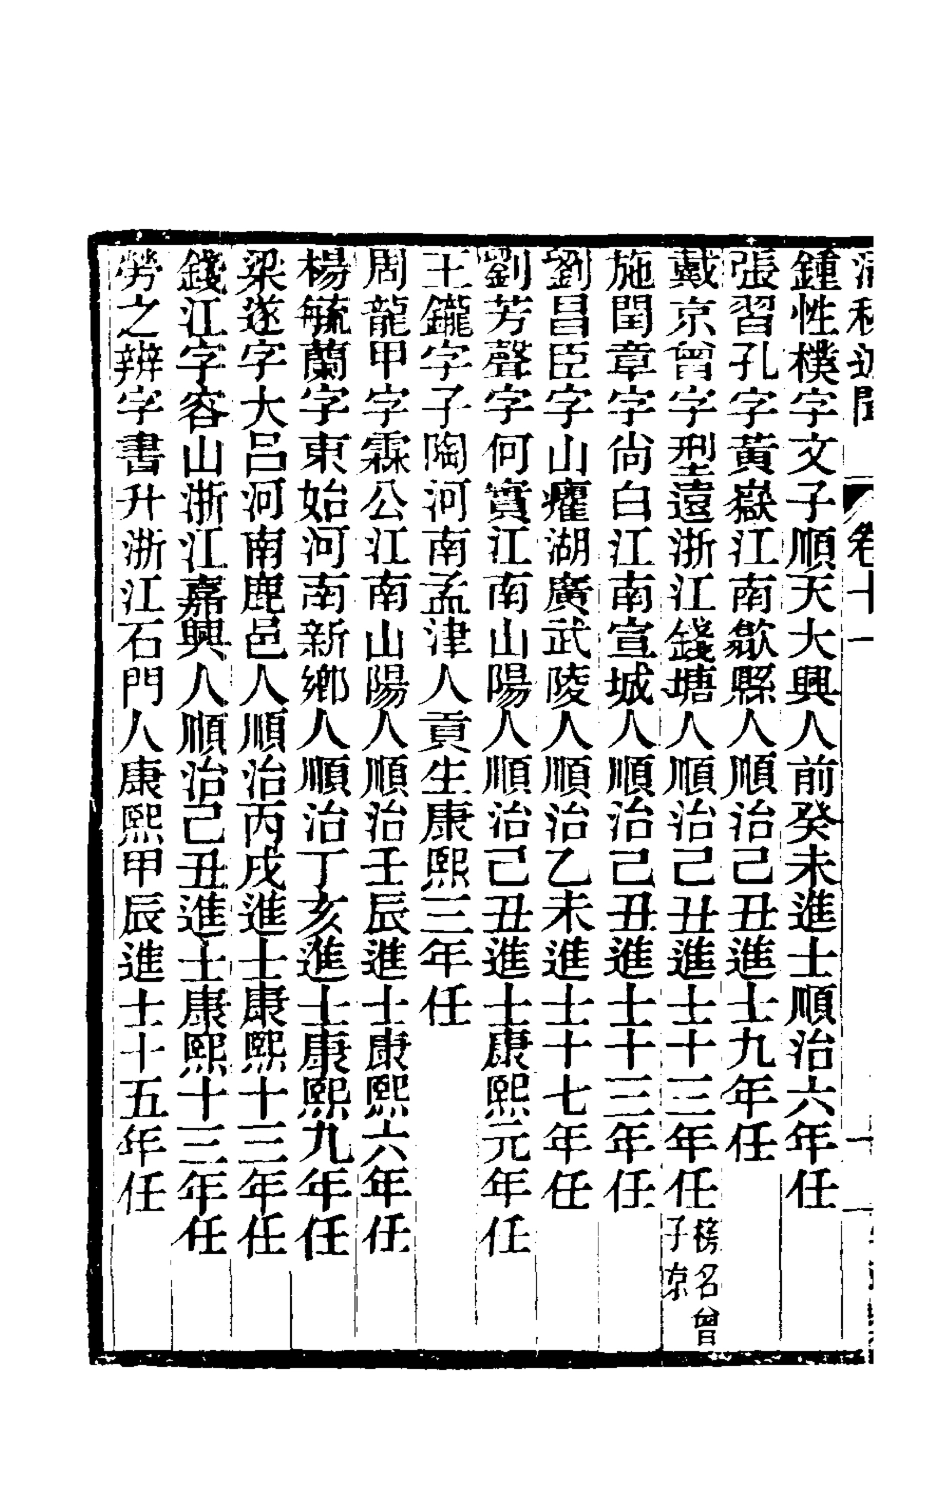 卷十一
鍾性樸字文子順天大興人前癸未進士順治六年任
張習孔字黃嶽江南歙縣人順治己丑進士九年任
戴京曾字型遠浙江錢塘人順治己丑進士十三年任榜名曾子京
施閏章字尙白江南宣城人順治己丑進士十三年任
劉昌臣字山癯湖廣武陵人順治乙未進士十七年任
劉芳聲字何實江南山陽人順治己丑進士康熙元年任
王鑨字子陶河南孟津人貢生康熙三年任
周龍甲字霖公江南山陽人順治壬辰進士康熙六年任
楊毓蘭字東始河南新鄉人順治丁亥進士康熙九年任
梁遂字大呂河南鹿邑人順治丙戌進士康熙十三年任
錢江字容山浙江嘉興人順治己丑進士康熙十三年任
勞之辨字書升浙江石門人康熙甲辰進士十五年任